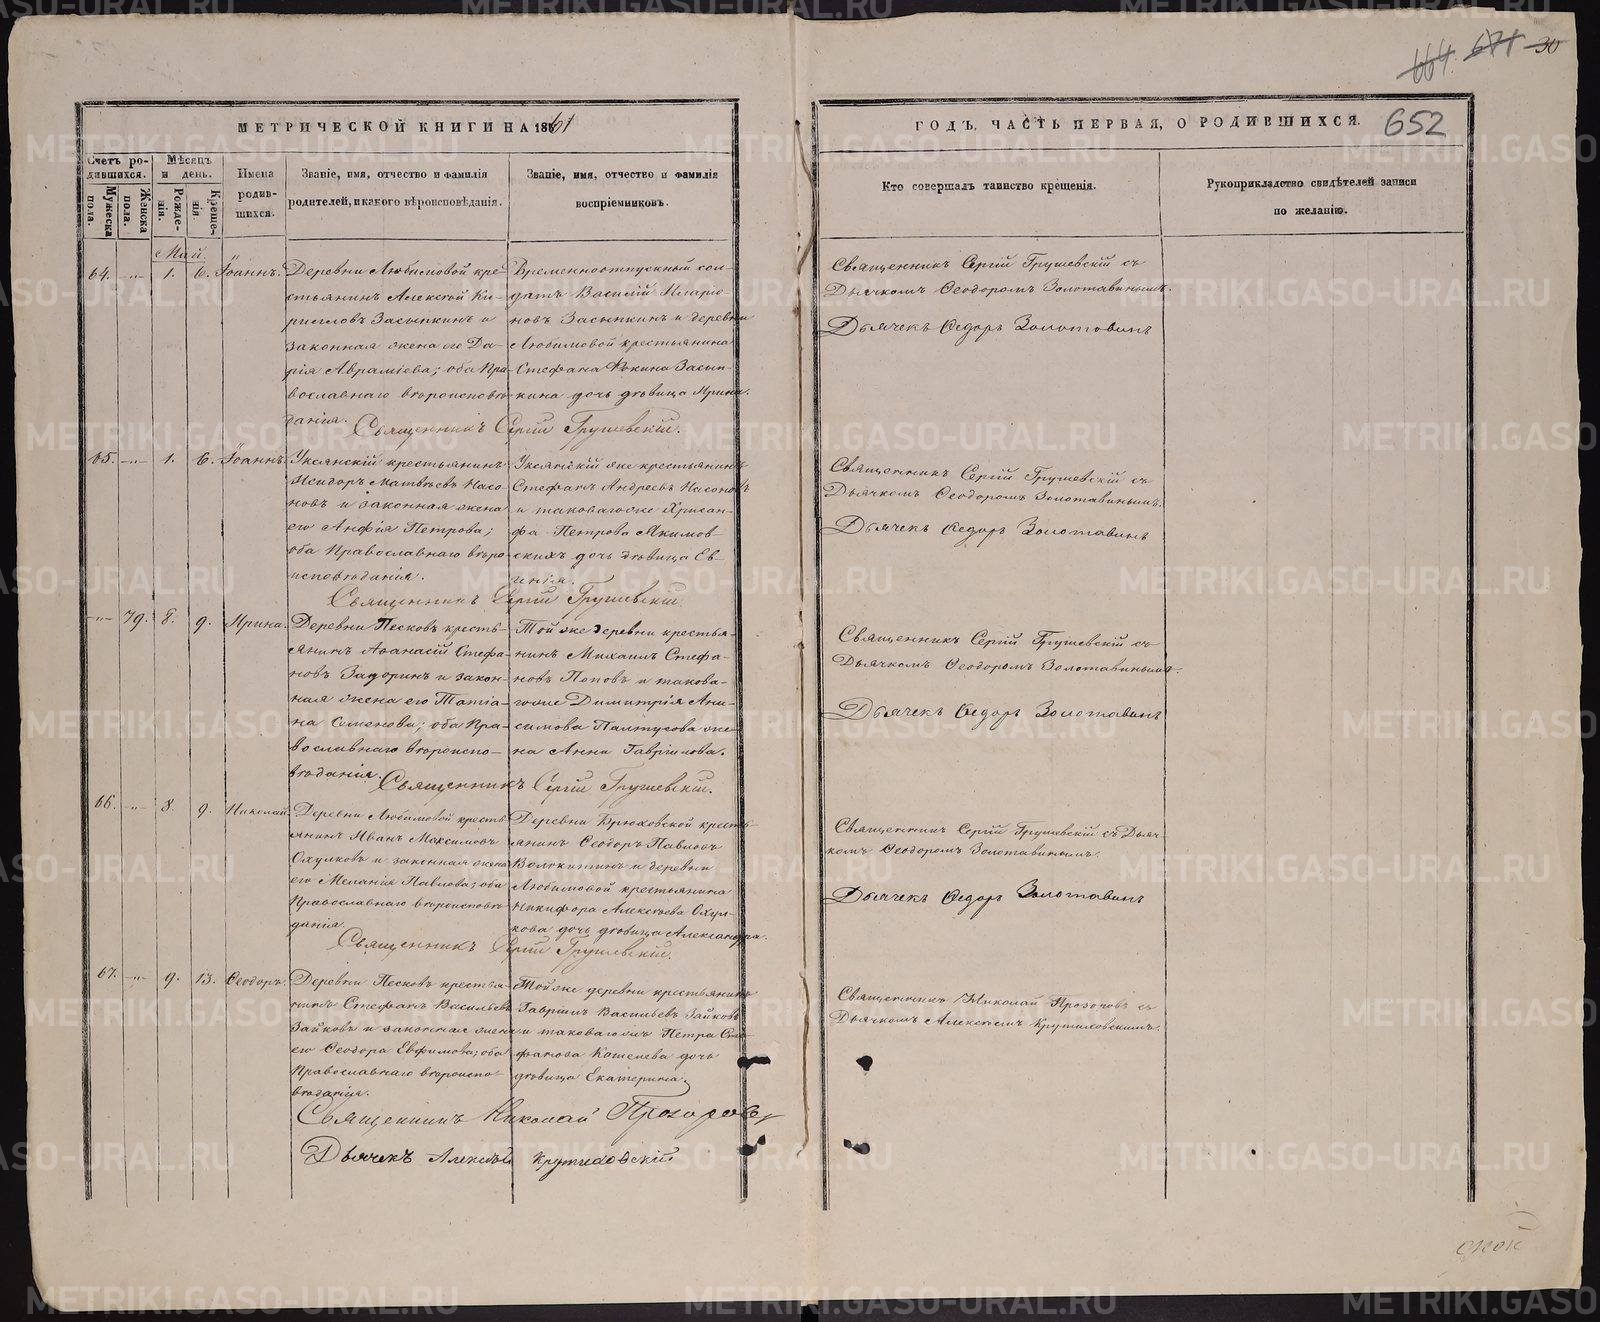 664 671 30
МЕТРИЧЕСКОЙ КНИГИ НА 1861
ГОДЪ, ЧАСТЬ ПЕРВАЯ, О РОДИВШИХСЯ.
652
Счетъ ро-
дившихся.
Мужеска
пола.
Женска
пола.
Мѣсяцъ
и день.
Рожде-
нія.
Креще-
нія.
Имена
родив-
шихся.
Званіе, имя, отчество и фамилія
родителей, и какого вѣроисповѣданія.
Званіе, имя, отчество и фамилія
воспріемниковъ.
Кто совершалъ таинство крещенія.
Рукоприкладство свидѣтелей записи
по желанію.
Май.
64. -"- 1. 6. Іоаннъ.
Деревни Любимовой кре-
стьянинъ Алексѣй Ки-
рилловъ Засыпкинъ и
законная жена его Да-
рія Авраміева; оба Пра-
вославнаго вѣроисповѣ-
данія.
Временноотпускный сол-
датъ Василій Иларіо-
новъ Засыпкинъ и деревни
Любимовой крестьянина
Стефана Фокина Засып-
кина дочь дѣвица Ирина.
Священникъ Сергій Грушевскій съ
Дьячкомъ Ѳеодоромъ Золотавинымъ.
Дьячекъ Ѳедоръ Золотавинъ
Священникъ Сергій Грушевскій.
65. -"- 1. 6. Іоаннъ.
Уксянскій крестьянинъ
Исидоръ Матвѣевъ Насо-
новъ и законная жена
его Анфія Петрова;
оба Православнаго вѣро-
исповѣданія.
Уксянскій же крестьянинъ
Стефанъ Андреевъ Насоновъ
и таковагоже Хрисан-
фа Петрова Якимов-
скихъ дочь дѣвица Ев-
Священникъ Сергій Грушевскій съ
Дьячкомъ Ѳеодоромъ Золотавинымъ.
Дьячекъ Ѳедоръ Золотавинъ
Священникъ Сергій Грушевскій.
-"- 79. 8. 9. Ирина.
Деревни Песковъ кресть-
янинъ Аѳанасій Стефа-
новъ Задоринъ и закон-
ная жена его Татіа-
на Семенова; оба Пра-
вославнаго вѣроиспо-
вѣданія.
Той же деревни крестья-
нинъ Михаилъ Стефа-
новъ Поповъ и такова-
гоже Димитрія Ани-
симова Палтусова же-
на Анна Гаврилова.
Священникъ Сергій Грушевскій съ
Дьячкомъ Ѳеодоромъ Золотавинымъ.
Дьячекъ Ѳедоръ Золотавинъ
Священникъ Сергій Грушевскій.
66. -"- 8. 9. Николай.
Деревни Любимовой кресть-
янинъ Иванъ Максимовъ
Охулковъ и законная жена
его Меланія Павлова; оба
Православнаго вѣроисповѣ-
данія.
Деревни Брюховской кресть-
янинъ Ѳеодоръ Павловъ
Волокитинъ и деревни
Любимовой крестьянина
Никифора Алексѣева Охул-
кова дочь дѣвица Александра.
Священникъ Сергій Грушевскій съ Дьяч-
комъ Ѳеодоромъ Золотавинымъ.
Дьячекъ Ѳедоръ Золотавинъ
Священникъ Сергій Грушевскій.
67. -"- 9. 13. Ѳеодоръ.
Деревни Песковъ крестья-
нинъ Стефанъ Васильевъ
Зайковъ и законная жена
его Ѳеодора Евфимова; оба
Православнаго вѣроиспо-
вѣданія.
Той же деревни крестьянинъ
Гавріилъ Васильевъ Зайковъ
и таковагожъ Петра Сте-
фанова Кошелева дочь
дѣвица Екатерина.
Священникъ Николай Прозоровъ съ
Дьячкомъ Алексѣемъ Крутиховскимъ.
Священникъ Николай Прозоровъ
Дьячекъ Алексѣй Крутиховскій
METRIKI.GASO-URAL.RU